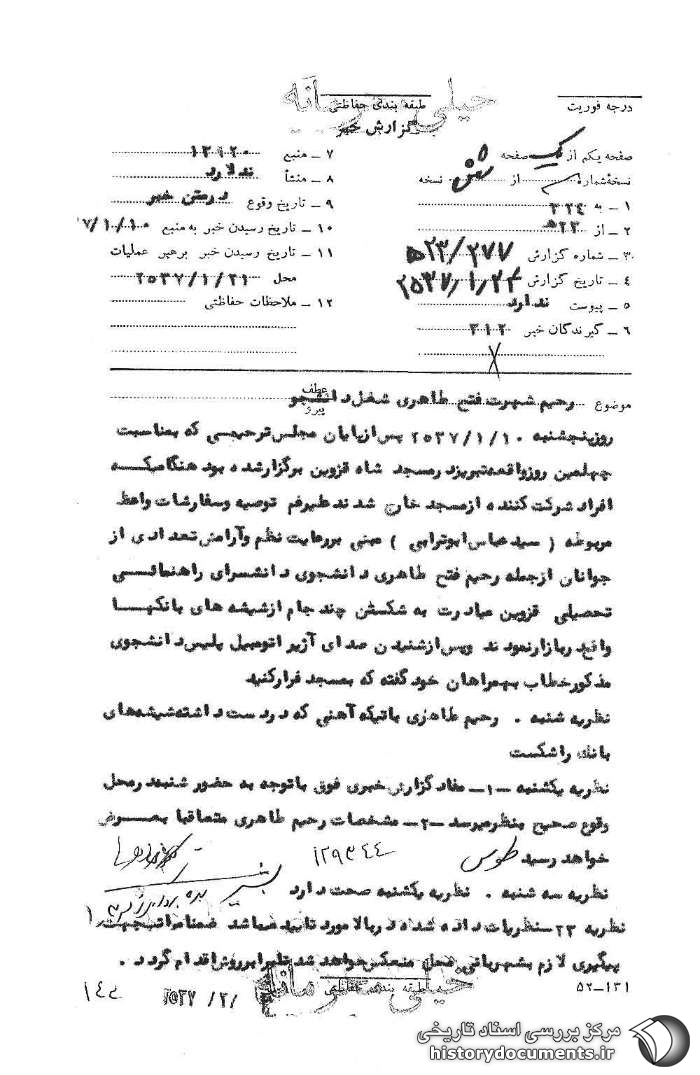 خیلی محرمانه
درجه فوریت
طبقه بندی حفاظتی
گزارش خبر
صفحه یکم از یک صفحه
نسخهٔ شماره از شش نسخه
۱ ـ به ۳۲۴
۲ ـ از ۲۳ه
۳ ـ شماره گزارش ۲۳/۲۷۷ه
۴ ـ تاریخ گزارش ۲۵۳۷/۱/۲۴
۵ ـ پیوست ندارد
۶ ـ گیرندگان خبر ۳۱۲
۷ ـ منبع ۱۲۹۲۰
۸ ـ منشأ ندارد
۹ ـ تاریخ وقوع درمتن خبر
۱۰ ـ تاریخ رسیدن خبر به منبع ۷/۱/۱۰
۱۱ ـ تاریخ رسیدن خبر برهبر عملیات
محل ۲۵۳۷/۱/۲۱
۱۲ ـ ملاحظات حفاظتی
موضوع رحیم شهرت فتح طاهری شغل دانشجو
عطف
پیرو
روزپنجشنبه ۲۵۳۷/۱/۱۰ پس ازپایان مجلس ترحیمی که بمناسبت
چهلمین روزواقعه تبریزد رمسجد شاه قزوین برگزارشده بود هنگامیکه
افراد شرکت کننده ازمسجد خارج شدند علیرغم توصیه وسفارشات واعظ
مربوطه ( سید عباس ابوترابی ) مبنی بررعایت نظم وآرامش تعدادی از
جوانان ازجمله رحیم فتح طاهری دانشجوی دانشسرای راهنمائی
تحصیلی قزوین مبادرت به شکستن چند جام ازشیشه های بانکها
واقع دربازارنمودند وپس ازشنیدن صدای آژیر اتومبیل پلیس دانشجوی
مذکورخطاب بهمراهان خود گفته که بمسجد فرارکنید
نظریه شنبه . رحیم طاهری باتیکه آهنی که دردست داشته شیشه های
بانک راشکست
نظریه یکشنبه ـ۱ـ مفاد گزارش خبری فوق باتوجه به حضور شنبه درمحل
وقوع صحیح بنظرمیرسد ـ۲ـ مشخصات رحیم طاهری متعاقبا بعرض
خواهد رسید طوسی ۱۲۹۳۴۴
نظریه سه شنبه . نظریه یکشنبه صحت دارد
نظریه ۲۳ـ نظریات داده شده دربالا مورد تایید میباشد ضمنا مراتب جهت
پیگیری لازم بشهربانی محل منعکس خواهد شد تا برابر روش اقدام گردد .
طبقه بندی حفاظتی
خیلی محرمانه
۵۲ـ۱۳۱
۲۵۳۷/۲/
مرکز بررسی اسناد تاریخی
historydocuments.ir